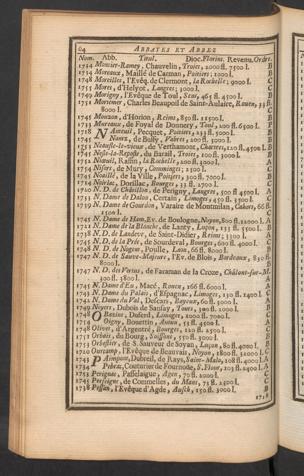 64 ABBAYES ET ABBEZ
Nom. Abb. Titul. Dioc. Florins. Revenu. Ordre.
1734 Monster-Ramey, Chauvelin, Troies, 2000 fl. 7500 l. B
Moreaux, Maillé de Carman, Poitiers; 1000 l. B
1748 Moreilles, l'Evêq. de Clermont, la Rochelle; 9000 l. C
1751 Mores, d'Helyot, Langres; 3000 l. C
1749 Morigny, l'Evêque de Toul, Sens, 465 fl. 4500 l. B
Mortemer, Charles Beaupoil de Saint-Aulaire, Rouen, 33 fl. C
8000 l.
1745 Mouzon, d'Horion, Reims, 850 fl. B
Mureaux, de Foyal de Donnery, Toul, 200 fl. 6500 l. P
Nanteuil, Pecquet, Poitiers, 233 fl. 5000 l. B
Nants, de Buisy, Vabres, 400 fl. B
Neaufle-le-vieux, de Verthamont, Chartres, 120 fl. 4500 l. B
Nesle-la-Reposte, du Barail, Troies, 3000 l. B
Nieuil, Raffin, la Rochelle, 200 fl. A
Nisors, de Mary, Comminges; C
Noaillé, de la Ville, Poitiers, 7000 l. B
Noirlac, Dorillac, Bourges, 33 fl. 2700 l. C
N. D. de Châtillon, de Perigny, Langres, 500 fl. 4500 l. A
N. Dame de Dalon, Certain, Limoges, 450 fl. 3500 l. C
N. Dame de Gourdon, Varaire de Montmilan, Cahors, 66 fl. C
1500 l.
1745 N. Dame de Ham, Ev. de Boulogne, Noyon, 800 fl. 12000 l. A
N. Dame de la Blanche, de Lanty, Luçon, 133 fl. 5500 l. C
N. D. de Landeve, de Saint-Didier, Reims; 3300 l. A
1745 N. D. de la Prée, de Sourdeval, Bourges, 600 fl. 4000 l. C
1748 N. D. de Nogent, Pouille, Laon, 66 fl. 8000 l. B
1747 N. D. de Sauve-Majeure, l'Ev. de Blois, Bordeaux, 850 fl. B
8000 l.
1747 N. D. des Vertus, de Faraman de la Croze, Châlons-sur-M. A
300 fl. 3800 l.
1745 N. Dame d'Eu, Macé, Rouen, 166 fl. 6000 l. A
1743 N. Dame du Palais, d'Espagnac, Limoges, 130 fl. 1400 l. C
1745 N. Dame du Val, Defcars, Bayeux, 60 fl. 3000 l. A
1749 Noyers, Dubois de Sansay, Tours, 300 fl. 2000 l. B
Obazine, Dufesd, Limoges, 2000 fl. 7000 l. C
Oigny, Bouettin, Autun, 55 fl. 4500 l. A
1748 Olivet, d'Argentré, Bourges, 120 fl. 2500 l. C
1751 Orbais, du Bourg, Soissons, 550 fl. 3000 l. B
Orbestier, de S. Sauveur de Soyan, Luçon, 80 fl. 4000 l. B
1720 Ourcamp, l'Evêque de Beauvais, Noyon, 1800 fl. 32000 l. C
Paimpont, Dubreil, de Rays, Saint-Malo, 108 fl. 4000 l. A
Pebrac, Couturier de Fournoüe, S. Flour, 203 fl. 2400 l. A
Perignac, Passelaigue, Agen, 70 fl. 2000 l. C
1745 Perseigne, de Commelles, du Mans, 73 fl. 2500 l. C
1738 Pessan, l'Evêque d'Agde, Ausch, 150 fl. 3000 l. B